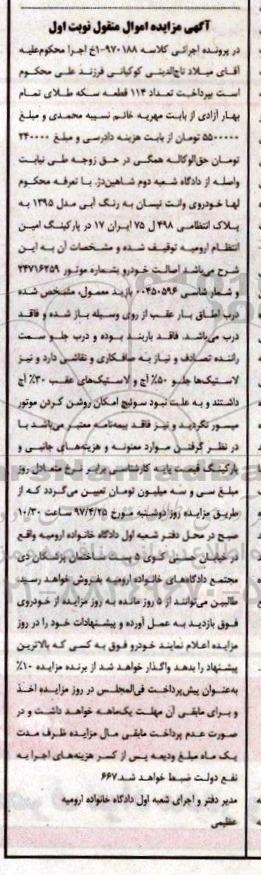 آگهی مزایده اموال منقول نوبت اول
در پرونده اجرائی کلاسه ۹۷۰۱۸۸-۱خ اجرا محکوم‌علیه
آقای میلاد تاج‌الدینی کوکیانی فرزند علی محکوم
است بپرداخت تعداد ۱۱۴ قطعه سکه طلای تمام
بهار آزادی از بابت مهریه خانم نسیبه محمدی و مبلغ
۵۵۰۰۰۰۰ تومان از بابت هزینه دادرسی و مبلغ ۲۴۰۰۰۰
تومان حق‌الوکاله همگی در حق زوجه طی نیابت
واصله از دادگاه شعبه دوم شاهین‌دژ. با تعرفه محکوم
لها خودروی وانت نیسان به رنگ آبی مدل ۱۳۹۵ به
پلاک انتظامی ۴۹۸ ل ۷۵ ایران ۱۷ در پارکینگ امین
انتظام ارومیه توقیف شده و مشخصات آن به این
شرح می‌باشد اصالت خودرو بشماره موتور ۲۴۷۱۶۲۵۹
و شمار شاسی ۰۰۴۵۰۵۹۶ بازید معمول، مشخص شده
درب اطاق بار عقب از روی وسیله باز شده و فاقد
درب می‌باشد. فاقد باربند بوده و درب جلو سمت
راننده تصادف و نیاز به صافکاری و نقاشی دارد و نیز
لاستیک‌ها جلو ۵۰٪ آج و لاستیک‌های عقب ۳۰٪ آج
داشتند و به علت نبود سوئیچ امکان روشن کردن موتور
میسور نگردید و نیز فاقد بیمه‌نامه معتبر می‌باشد با
در نظر گرفتن موارد معنونه و هزینه‌های جانبی و
پارکینگ قیمت پایه کارشناسی برابر نرخ متعادل روز
مبلغ سی و سه میلیون تومان تعیین می‌گردد که از
طریق مزایده روز دوشنبه مورخ ۹۷/۴/۲۵ ساعت ۱۰/۳۰
صبح در محل دفتر شعبه اول دادگاه خانواده ارومیه واقع
در خیابان حسنی کوی ۵ پشت ساختمان پزشکان دی
مجتمع دادگاه‌های خانواده ارومیه بفروش خواهد رسید.
طالبین می‌توانند از ۵ روز مانده به روز مزایده از خودروی
فوق بازدید به عمل آورده و پیشنهادات خود را در روز
مزایده اعلام نمایند خودرو فوق به کسی که بالاترین
پیشنهاد را بدهد واگذار خواهد شد از برنده مزایده ۱۰٪
به‌عنوان پیش‌پرداخت فی‌المجلس در روز مزایده اخذ
و برای مابقی آن مهلت یک‌ماهه خواهد داشت و در
صورت عدم پرداخت مابقی مال مزایده ظرف مدت
یک ماه مبلغ ودیعه پس از کسر هزینه‌های اجرا به
نفع دولت ضبط خواهد شد.۶۶۷
مدیر دفتر و اجرای شعبه اول دادگاه خانواده ارومیه
عظیمی